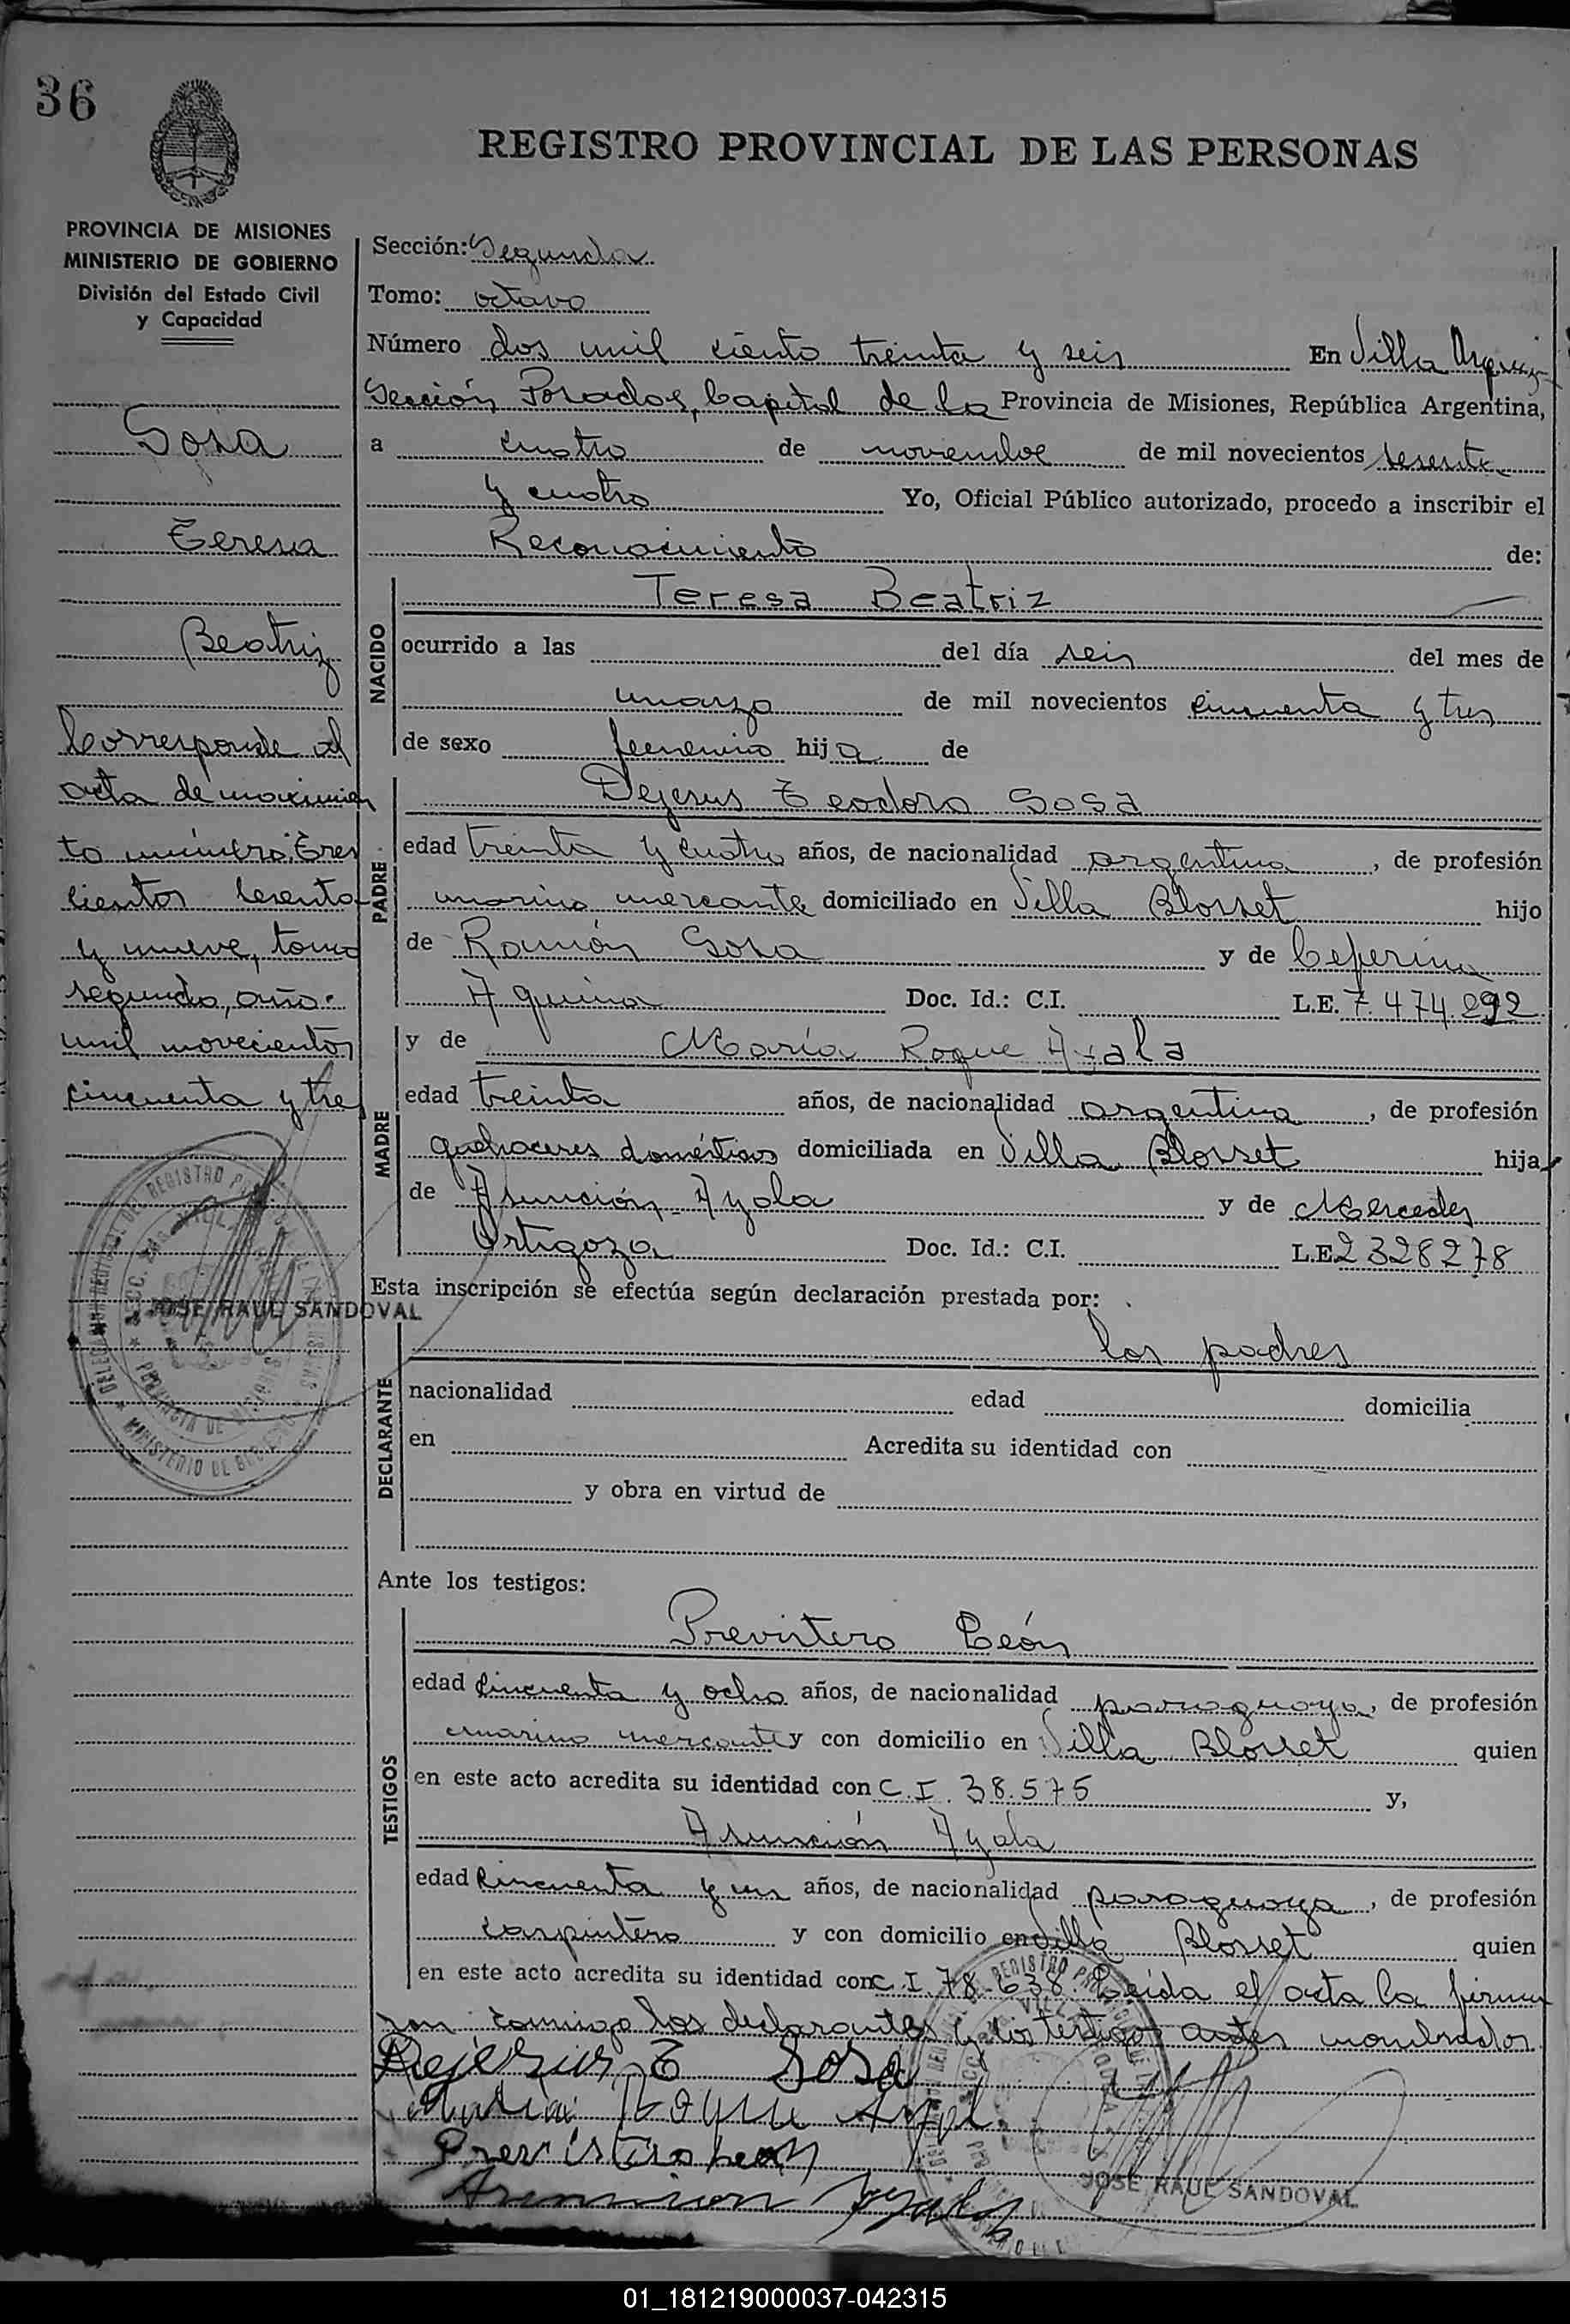 36
REGISTRO PROVINCIAL DE LAS PERSONAS
PROVINCIA DE MISIONES
MINISTERIO DE GOBIERNO
División del Estado Civil
y Capacidad
Sosa
Teresa
Beatriz
Corresponde al
acta de nacimien
to número Tres
cientos sesenta
y nueve, tomo
segundo, año
mil novecientos
cincuenta y tres
JOSE RAUL SANDOVAL
Sección: Segunda
Tomo: octavo
Número dos mil ciento treinta y seis En Villa
Sección Posadas, Capital de la Provincia de Misiones, República Argentina,
a cuatro de noviembre de mil novecientos sesenta
y cuatro Yo, Oficial Público autorizado, procedo a inscribir el
Reconocimiento de:
NACIDO
Teresa Beatriz
ocurrido a las del día seis del mes de
marzo de mil novecientos cincuenta y tres
de sexo femenino hija de
PADRE
Dejesus Teodoro Sosa
edad treinta y cuatro años, de nacionalidad argentina, de profesión
marino mercante domiciliado en Villa Blosset hijo
de Ramón Sosa y de Ceferina
Aquina Doc. Id.: C.I. L.E. 7.474.292
MADRE
y de María Roque Ayala
edad treinta años, de nacionalidad argentina, de profesión
quehaceres domésticos domiciliada en Villa Blosset hija
de Asunción Ayala y de Mercedes
Ortigoza Doc. Id.: C.I. L.E. 2328278
Esta inscripción se efectúa según declaración prestada por:
DECLARANTE
los padres
nacionalidad edad domicilia
en Acredita su identidad con
y obra en virtud de
Ante los testigos:
TESTIGOS
Previstero León
edad cincuenta y ocho años, de nacionalidad paraguaya, de profesión
marino mercante y con domicilio en Villa Blosset quien
en este acto acredita su identidad con C.I. 38.575 y,
Asunción Ayala
edad cincuenta y un años, de nacionalidad paraguaya, de profesión
carpintero y con domicilio en Villa Blosset quien
en este acto acredita su identidad con C.I. 78.638. Leída el acta la firma
ron conmigo los declarantes y los testigos antes nombrados
Dejesus T Sosa
María Roque Ayal
Previstero Leon
Asuncion Ayala
JOSE RAUL SANDOVAL
01_181219000037-042315